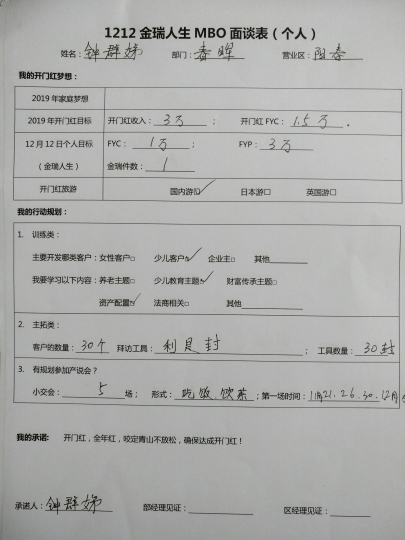 1212金瑞人生MBO面谈表（个人）
姓名：钟群娣 部门：春晖 营业区：阳春
我的开门红梦想：
2019年家庭梦想
2019年开门红目标 开门红收入：3万； 开门红FYC：1.5万.
12月12日个人目标（金瑞人生） FYC：1万； FYP：3万
金瑞件数：1
开门红旅游 国内游☑ 日本游□ 英国游□
我的行动规划：
1. 训练类：
主要开发哪类客户：女性客户□ 少儿客户☑ 企业主□ 其他
我要学习以下内容：养老主题□ 少儿教育主题☑ 财富传承主题□
资产配置☑ 法商相关□ 其他
2. 主拓类：
客户的数量：30个 拜访工具：利是封； 工具数量：30封
3. 有规划参加产说会？
小交会：5场； 形式：吃饭饮茶；第一场时间：11月21.26.30.12月
我的承诺： 开门红，全年红，咬定青山不放松，确保达成开门红！
承诺人：钟群娣 部经理见证： 区经理见证：